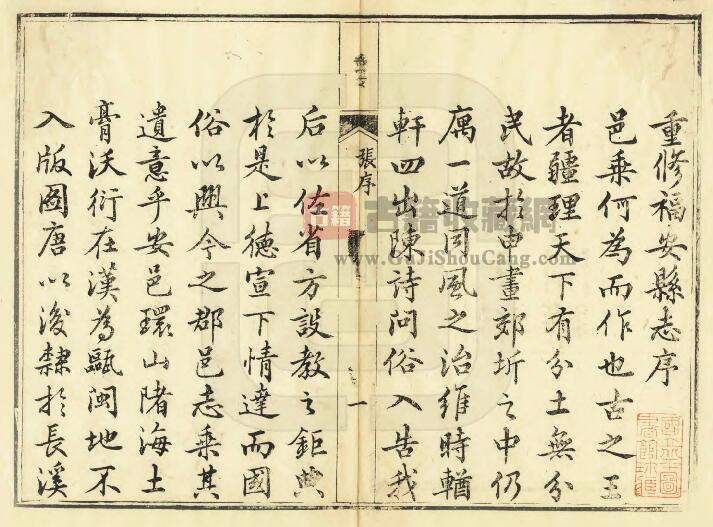 重修福安縣志序
邑乘何為而作也古之王
者疆理天下有分土無分
民故於申畫郊圻之中仍
寓一道同風之治維時輶
軒四出陳詩問俗入告我
張序
一
后以佐省方設教之鉅典
於是上德宣下情達而國
俗以興今之郡邑志乘其
遺意乎安邑環山瀦海土
膏沃衍在漢為甌閩地不
入版圖唐以後隸於長溪
古籍
古籍收藏網
www.GuJiShouCang.com